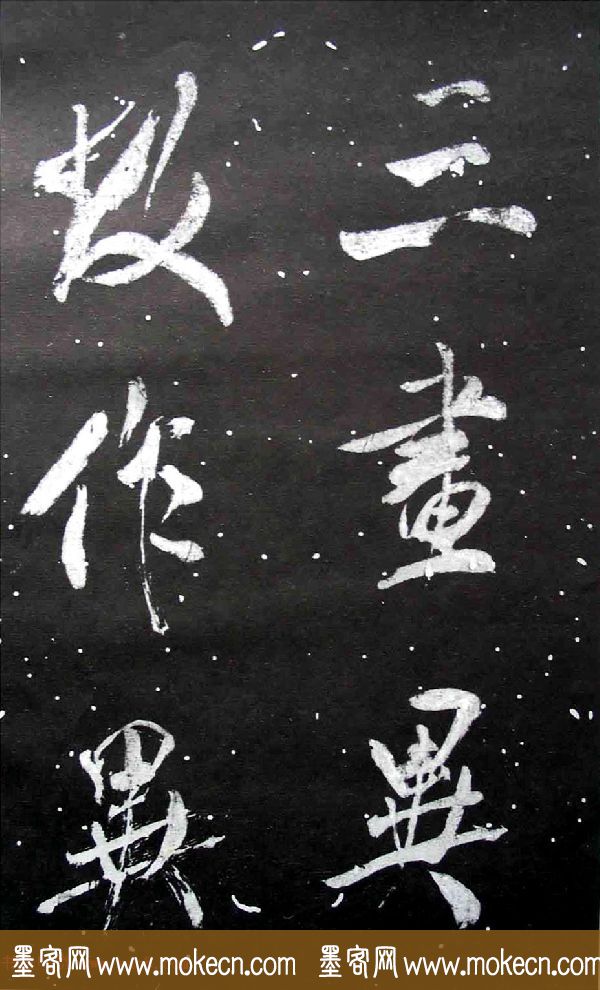 三畫異
故作異
墨客网 www.mokecn.com 墨客网 www.mokecn.com